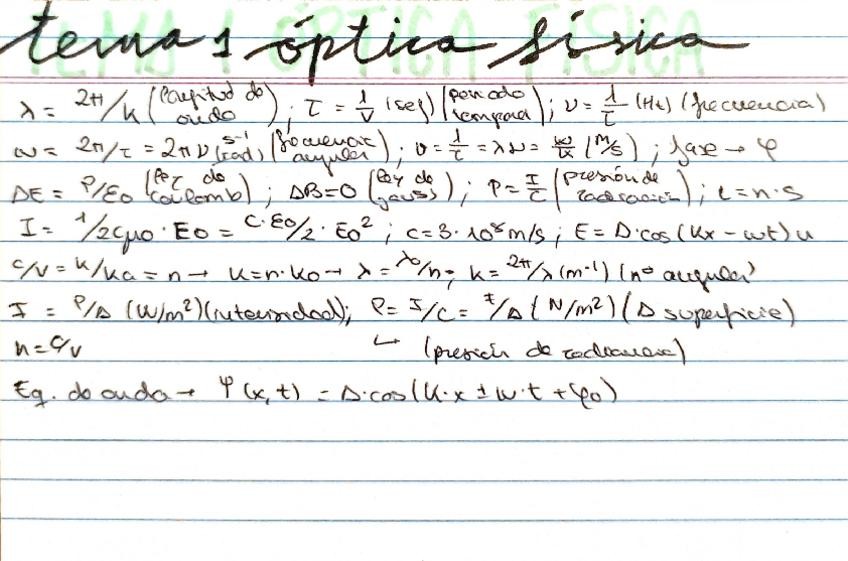 tema 1 óptica física
λ = 2π/k (longitud de onda) ; τ = 1/ν (seg) (periodo temporal) ; ν = 1/τ (Hz) (frecuencia)
ω = 2π/τ = 2πν (s⁻¹ rad) (frecuencia angular) ; v = λ/τ = λν = ω/k (m/s) ; fase → φ
ΔE = ρ/ε0 (Ley de Coulomb) ; ΔB=0 (Ley de gauss) ; P = I/c (presión de radiación) ; L = n·s
I = 1/2cμ0 · E0 = c·ε0/2 · E0² ; c = 3·10⁸ m/s ; E = A·cos(kx − ωt) u
c/v = k/k0 = n → k = n·k0 → λ = λ0/n ; k = 2π/λ (m⁻¹) (nº angular)
I = P/A (W/m²) (intensidad) ; P = I/c = F/A (N/m²) (A superficie)
n = c/v ↳ (presión de radiación)
Eq. de onda → Ψ(x,t) = A·cos(k·x ± ω·t + φ0)